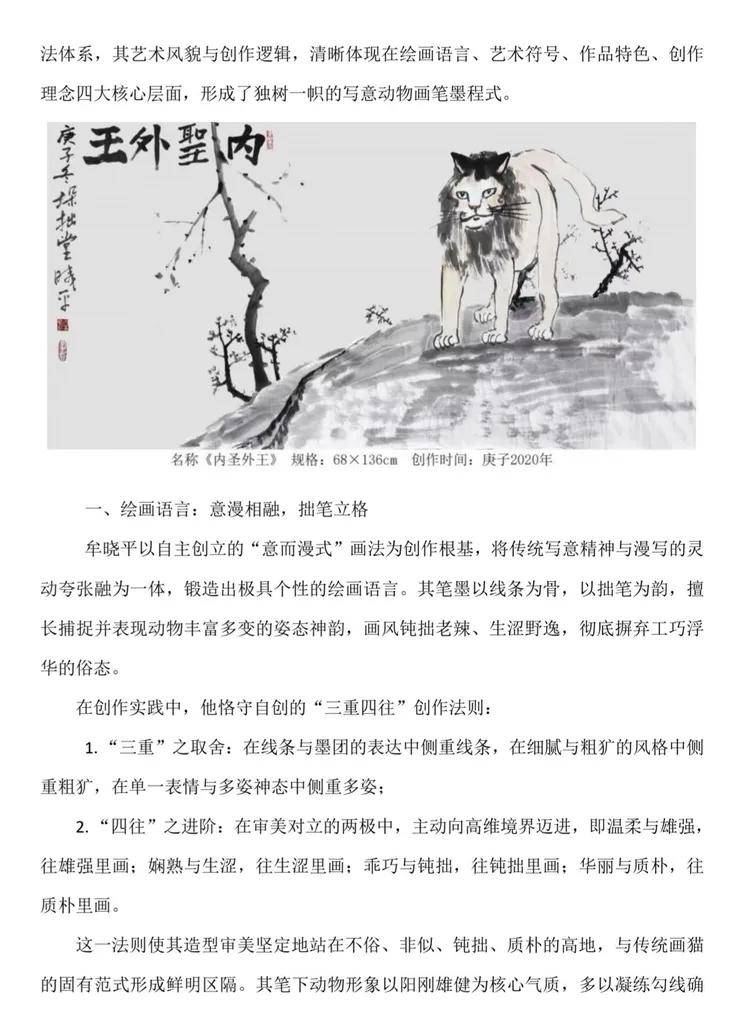 法体系，其艺术风貌与创作逻辑，清晰体现在绘画语言、艺术符号、作品特色、创作
理念四大核心层面，形成了独树一帜的写意动物画笔墨程式。
王外聖内
庚子冬 拙堂 晓平
名称《内圣外王》 规格：68×136cm 创作时间：庚子2020年
一、绘画语言：意漫相融，拙笔立格
牟晓平以自主创立的“意而漫式”画法为创作根基，将传统写意精神与漫写的灵
动夸张融为一体，锻造出极具个性的绘画语言。其笔墨以线条为骨，以拙笔为韵，擅
长捕捉并表现动物丰富多变的姿态神韵，画风钝拙老辣、生涩野逸，彻底摒弃工巧浮
华的俗态。
在创作实践中，他恪守自创的“三重四往”创作法则：
1. “三重”之取舍：在线条与墨团的表达中侧重线条，在细腻与粗犷的风格中侧
重粗犷，在单一表情与多姿神态中侧重多姿；
2. “四往”之进阶：在审美对立的两极中，主动向高维境界迈进，即温柔与雄强，
往雄强里画；娴熟与生涩，往生涩里画；乖巧与钝拙，往钝拙里画；华丽与质朴，往
质朴里画。
这一法则使其造型审美坚定地站在不俗、非似、钝拙、质朴的高地，与传统画猫
的固有范式形成鲜明区隔。其笔下动物形象以阳刚雄健为核心气质，多以凝练勾线确